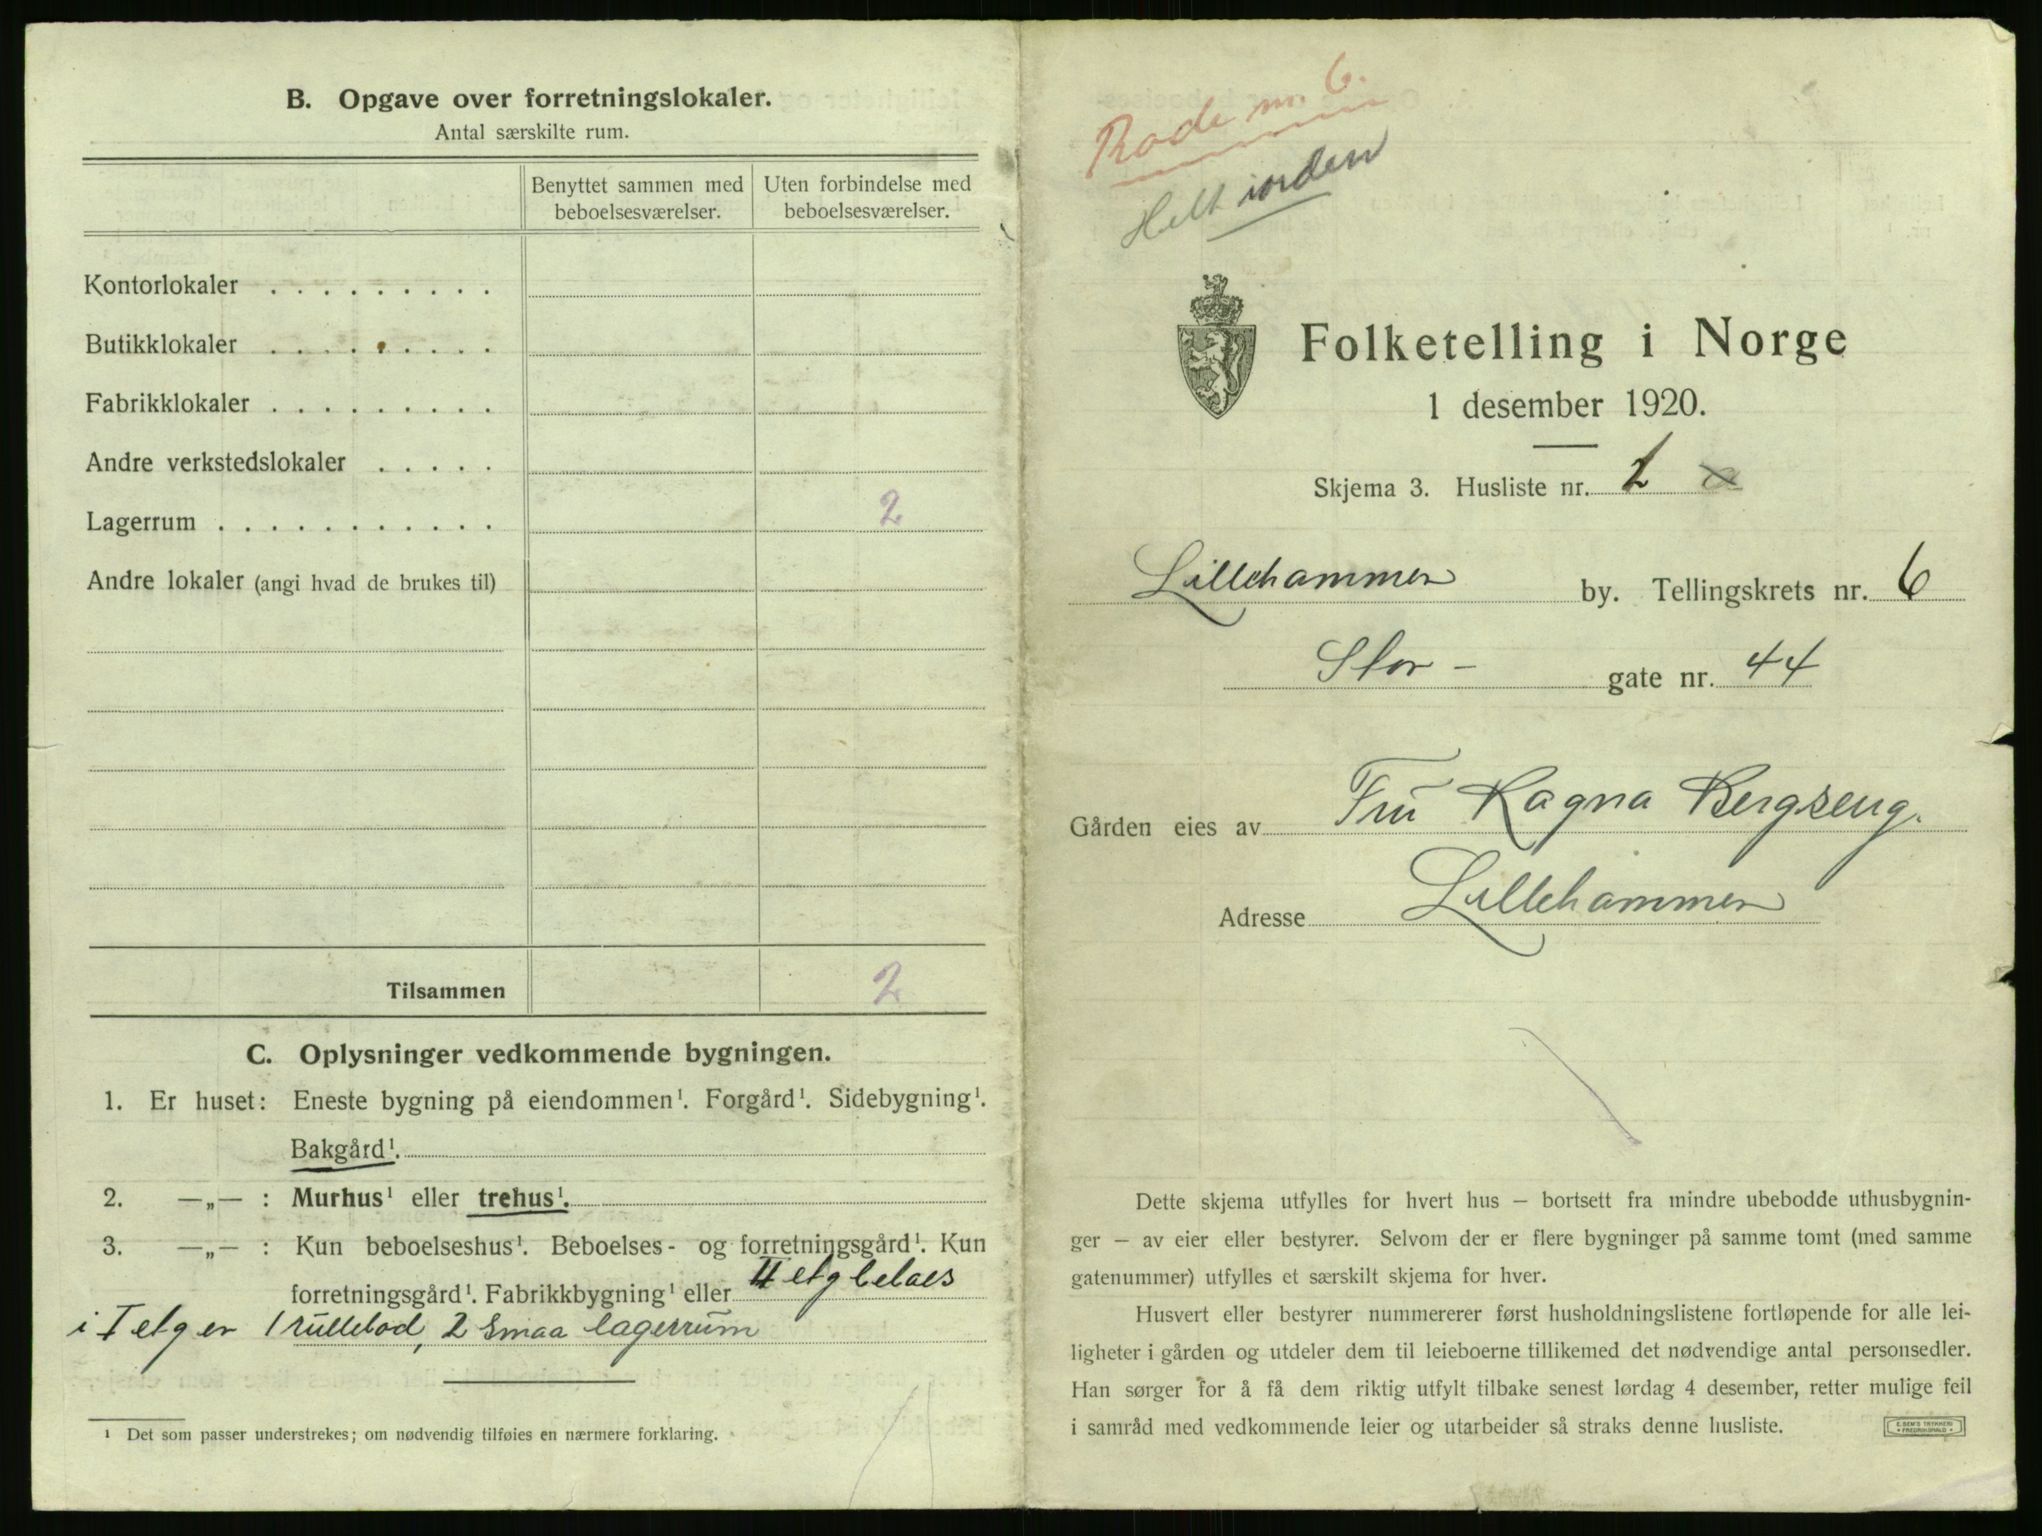 B. Opgave over forretningslokaler.
Antal særskilte rum.
Benyttet sammen med beboelsesværelser.
Uten forbindelse med beboelsesværelser.
Kontorlokaler . . . . . . . . .
Butikklokaler . . . . . . . . .
Fabrikklokaler . . . . . . . . .
Andre verkstedslokaler . . . . .
Lagerrum . . . . . . . . . . . 2
Andre lokaler (angi hvad de brukes til)
Tilsammen 2
C. Oplysninger vedkommende bygningen.
1. Er huset: Eneste bygning på eiendommen¹. Forgård¹. Sidebygning¹.
Bakgård¹.
2. —„— : Murhus¹ eller trehus¹.
3. —„— : Kun beboelseshus¹. Beboelses- og forretningsgård¹. Kun
forretningsgård¹. Fabrikkbygning¹ eller II etg beboes
i I etg er 1 rullebod, 2 smaa lagerrum
¹ Det som passer understrekes; om nødvendig tilføies en nærmere forklaring.
Rode nr. 6.
Helt iorden
Folketelling i Norge
1 desember 1920.
Skjema 3. Husliste nr. 2
Lillehammer by. Tellingskrets nr. 6
Stor- gate nr. 44
Gården eies av Fru Ragna Bergseng.
Adresse Lillehammer
Dette skjema utfylles for hvert hus – bortsett fra mindre ubebodde uthusbygnin-
ger – av eier eller bestyrer. Selvom der er flere bygninger på samme tomt (med samme
gatenummer) utfylles et særskilt skjema for hver.
Husvert eller bestyrer nummererer først husholdningslistene fortløpende for alle lei-
ligheter i gården og utdeler dem til leieboerne tillikemed det nødvendige antal personsedler.
Han sørger for å få dem riktig utfylt tilbake senest lørdag 4 desember, retter mulige feil
i samråd med vedkommende leier og utarbeider så straks denne husliste.
E. SEM'S TRYKKERI
• FREDRIKSHALD •